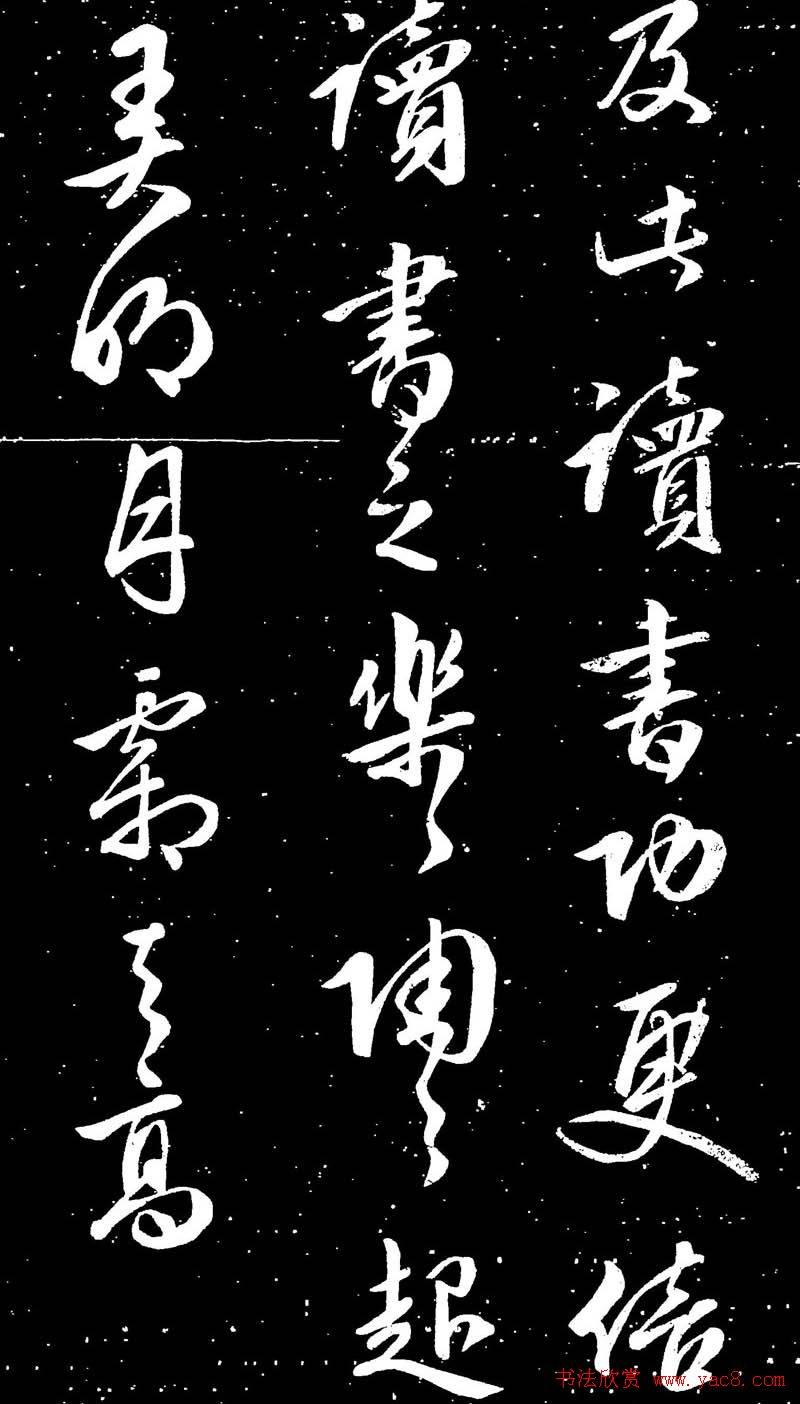 及此讀書功更倍
讀書之樂樂陶陶起
弄明月霜天高
书法欣赏 www.yac8.com